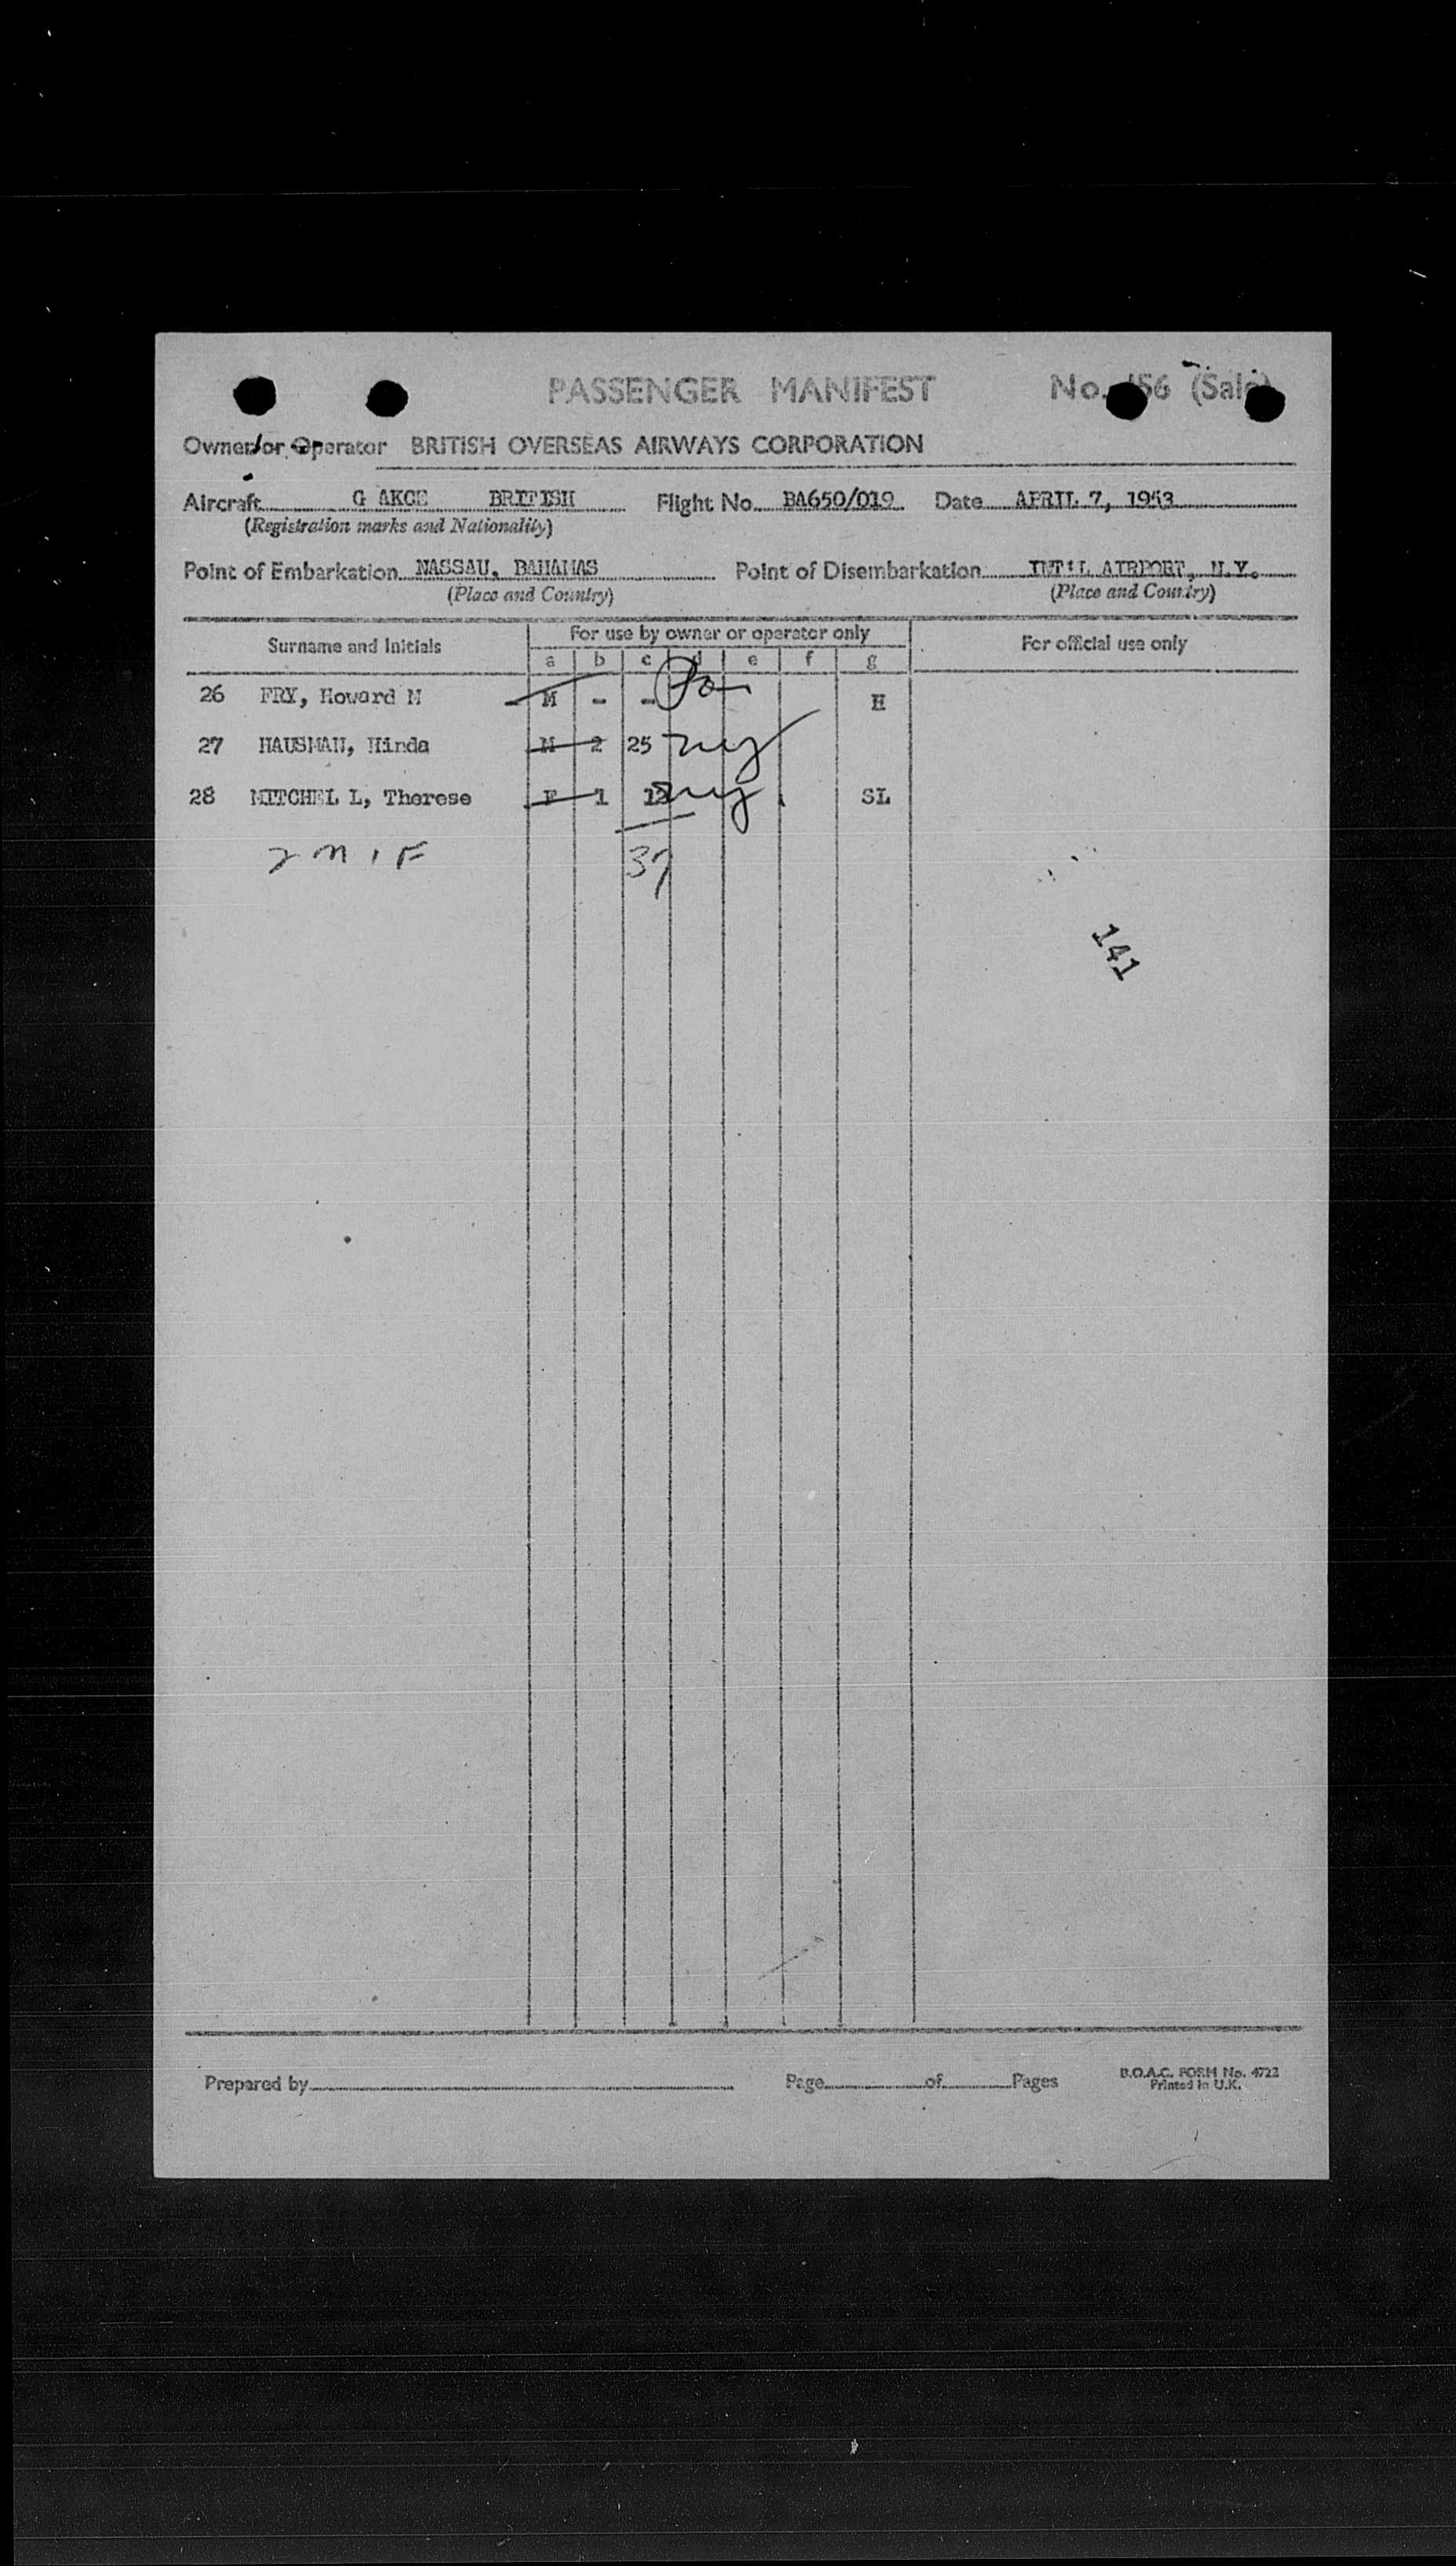 PASSENGER MANIFEST No. 156 (Sale)
Owner or Operator BRITISH OVERSEAS AIRWAYS CORPORATION
Aircraft G AKCE BRITISH Flight No. BA650/019 Date APRIL 7, 1953
(Registration marks and Nationality)
Point of Embarkation NASSAU, BAHAMAS Point of Disembarkation INT'L AIRPORT, N.Y.
(Place and Country) (Place and Country)
Surname and Initials For use by owner or operator only For official use only
a b c d e f g
26 FRY, Howard M M - - H
27 HAUSMAN, Hinda M 2 25 ny
28 MITCHEL L, Therese F 1 12 ny SL
2 M 1 F 37
141
Prepared by Page of Pages B.O.A.C. FORM No. 4722
Printed in U.K.